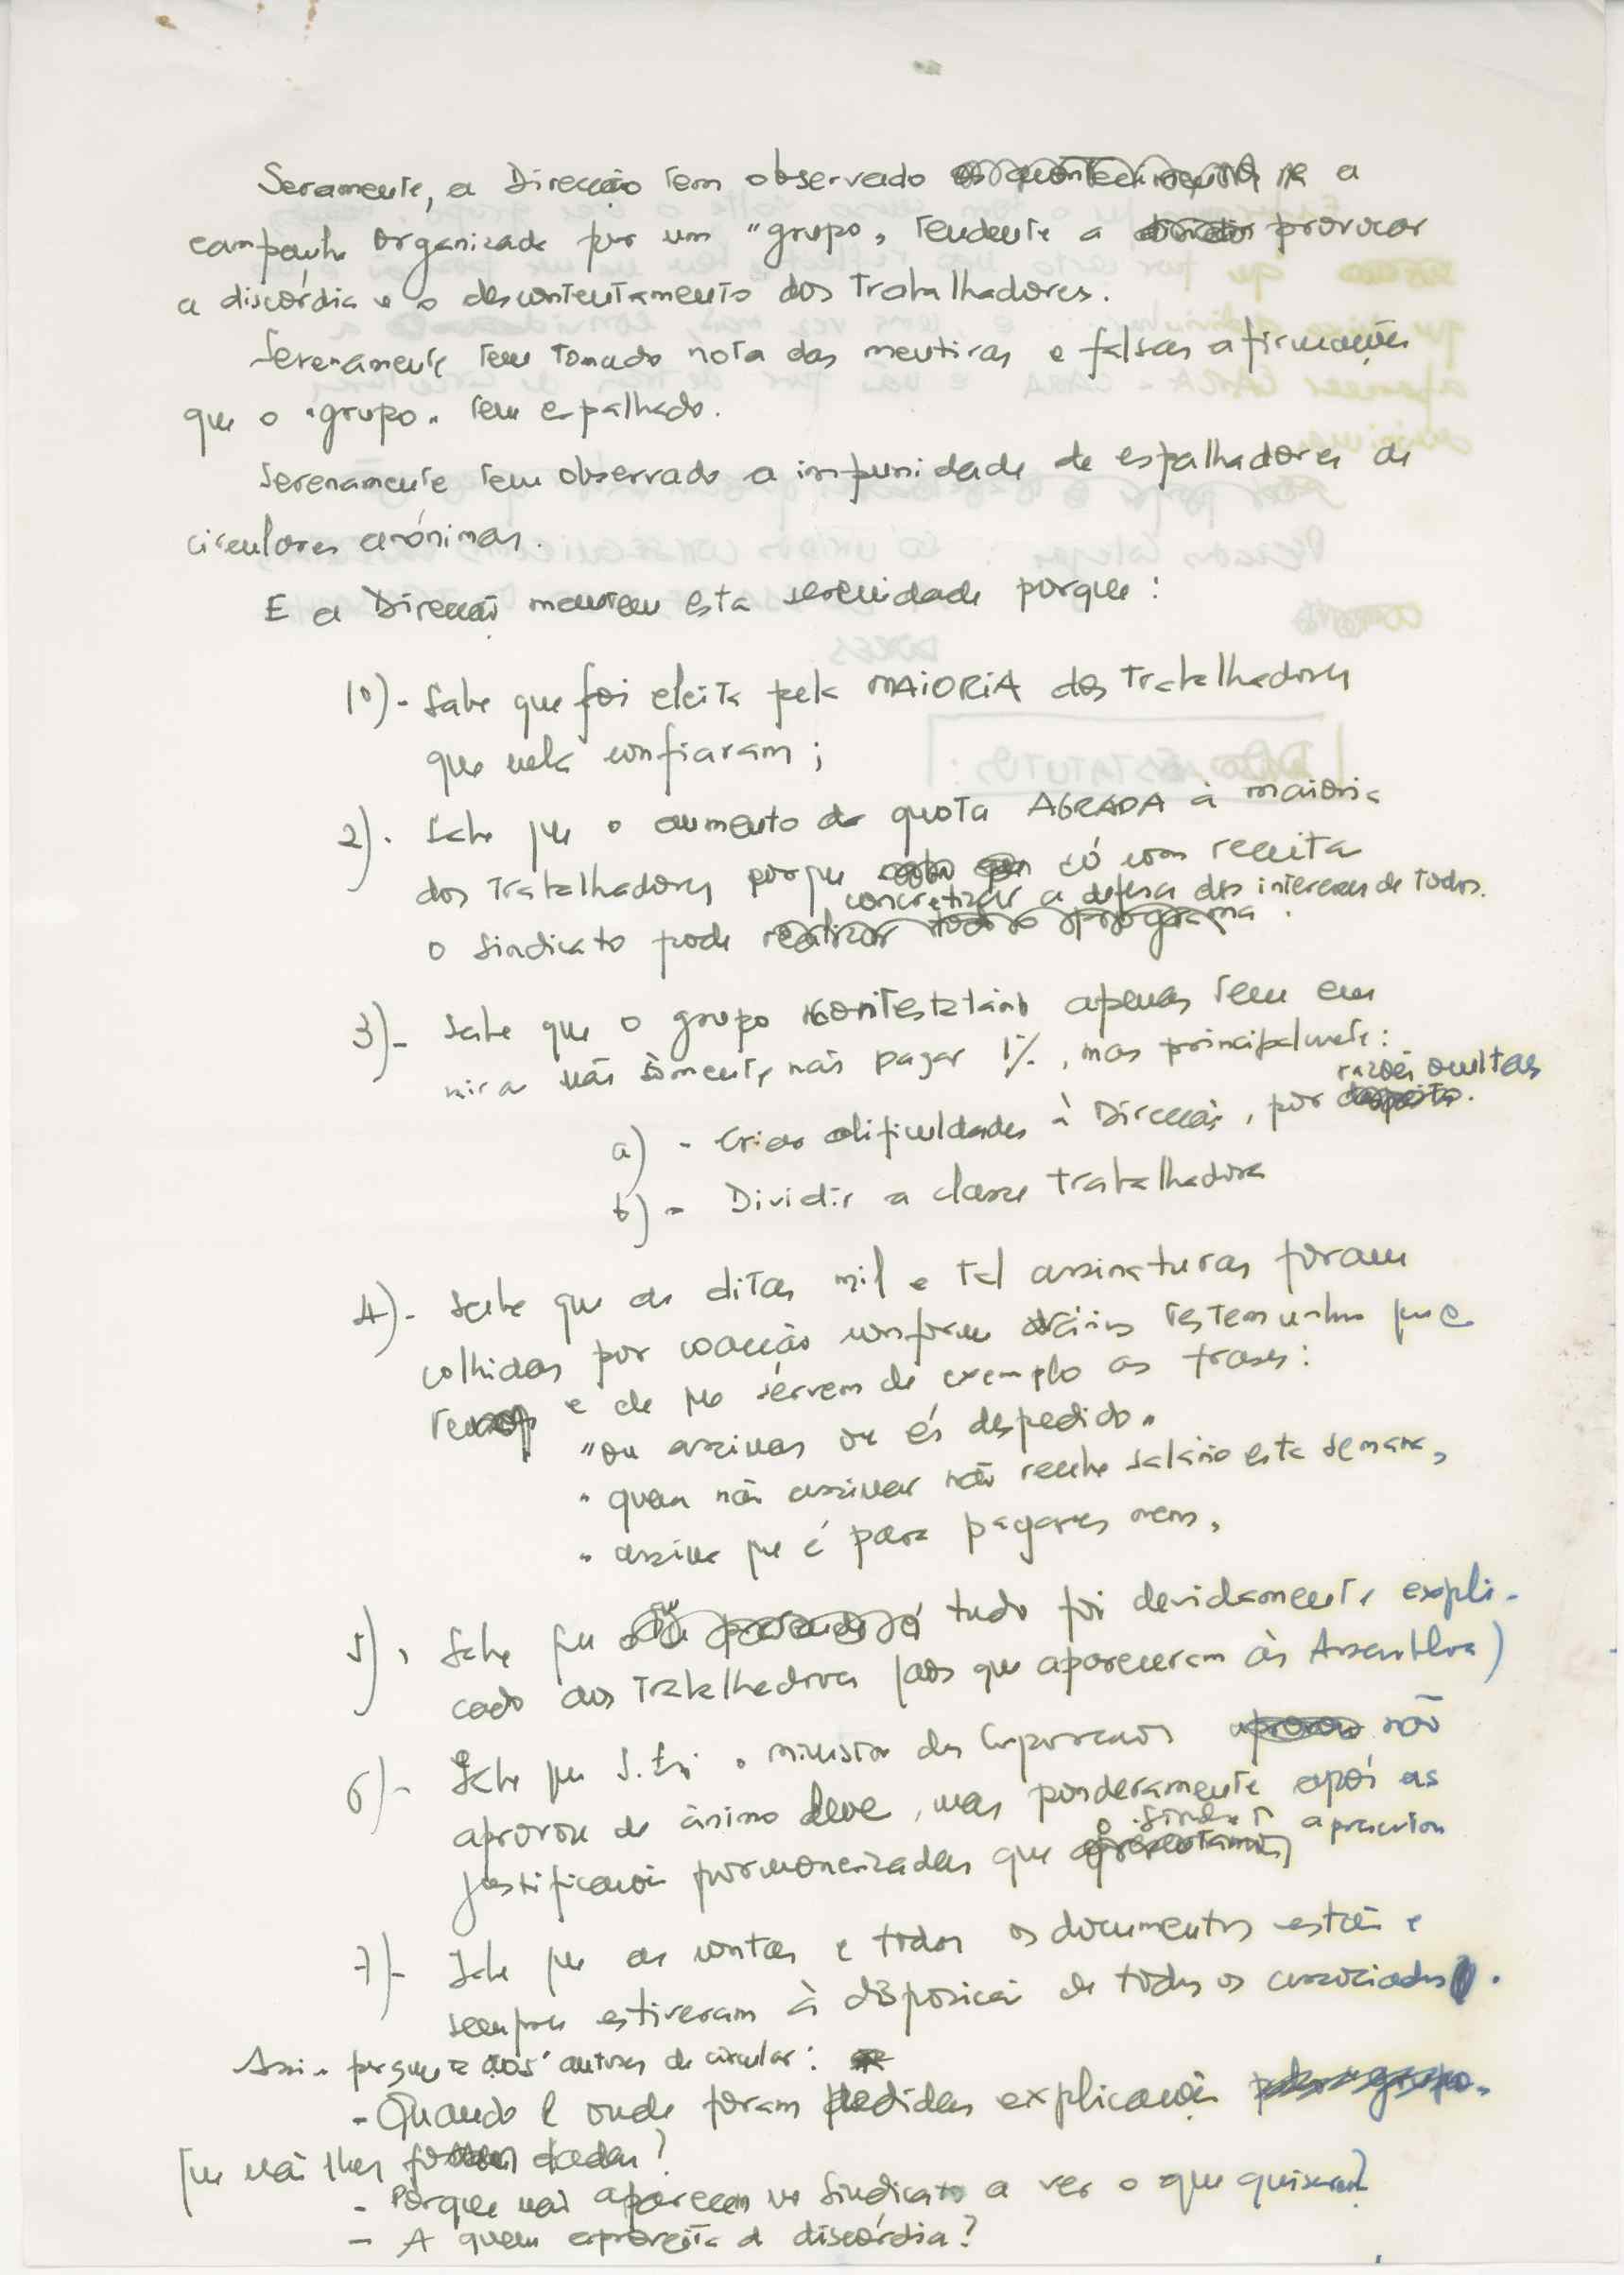 Seramente, a Direcção tem observado a
campanha organizada por um "grupo" tendente a provocar
a discórdia e o descontentamento dos trabalhadores.
Serenamente tem tomado nota das mentiras e falsas afirmações
que o "grupo" tem espalhado.
Serenamente tem observado a impunidade de espalhadores de
circulares anónimas.
E a Direcção mantem esta serenidade porque:
1º)- Sabe que foi eleita pela MAIORIA dos trabalhadores
que nela confiaram;
2)- Sabe que o aumento da quota AGRADA à maioria
dos trabalhadores porque só com receita
concretizar a defesa dos interesses de todos.
o Sindicato pode realizar todo o programa.
3)- Sabe que o grupo contestatário apenas tem em
mira não sòmente não pagar 1%, mas principalmente:
razões ocultas
a) - Criar dificuldades à Direcção, por despeito.
b) - Dividir a classe trabalhadora
4)- Sabe que as ditas mil e tal assinaturas foram
colhidas por coacção conforme vários testemunhos que
e de que servem de exemplo as frases:
"ou assinas ou és despedido"
"quem não assinar não recebe salário esta semana"
"assina que é para pagares menos"
5)- Sabe que tudo foi devidamente expli-
cado aos trabalhadores (aos que apareceram às Assembleia)
6)- Sabe que S. Exª o ministro das Corporações não
aprovou de ânimo leve, mas ponderamente após as
o Sindicato
justificações pormonorizadas que apresentamos apresentou
7)- Sabe que as contas e todos os documentos estão e
sempre estiveram à disposição de todos os associados.
Assim pergunta aos autores da circular:
- Quando e onde foram pedidas explicações pelo grupo
que não lhes foram dadas?
- Porque não aparecem no Sindicato a ver o que quiserem?
- A quem aproveita a discórdia?